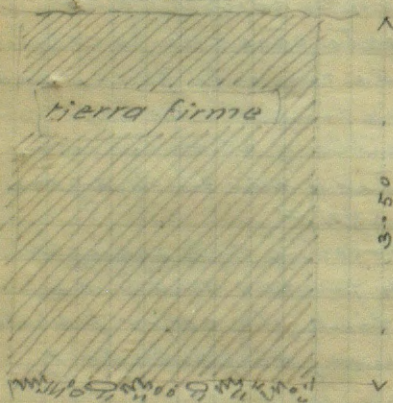 tierra firme
3-50